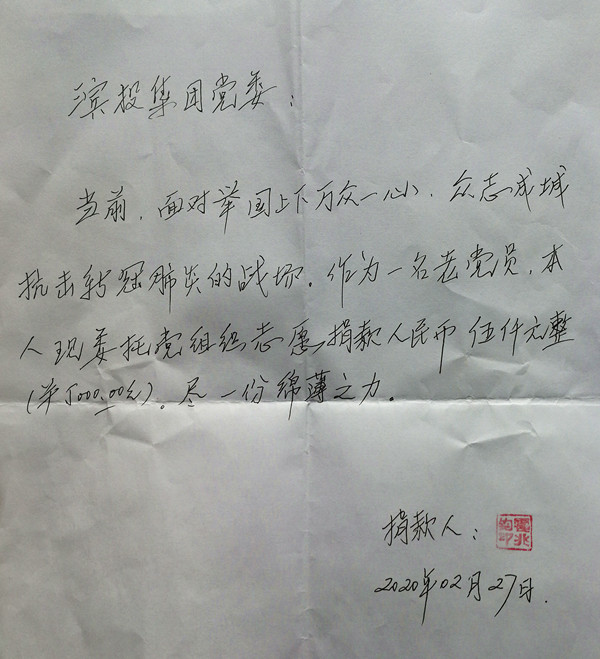 滨投集团党委：
当前，面对举国上下万众一心、众志成城
抗击新冠肺炎的战场。作为一名老党员，本
人现委托党组织志愿捐款人民币 伍仟元整
(¥5000.00元)。尽一份绵薄之力。
捐款人：
2020年02月27日.